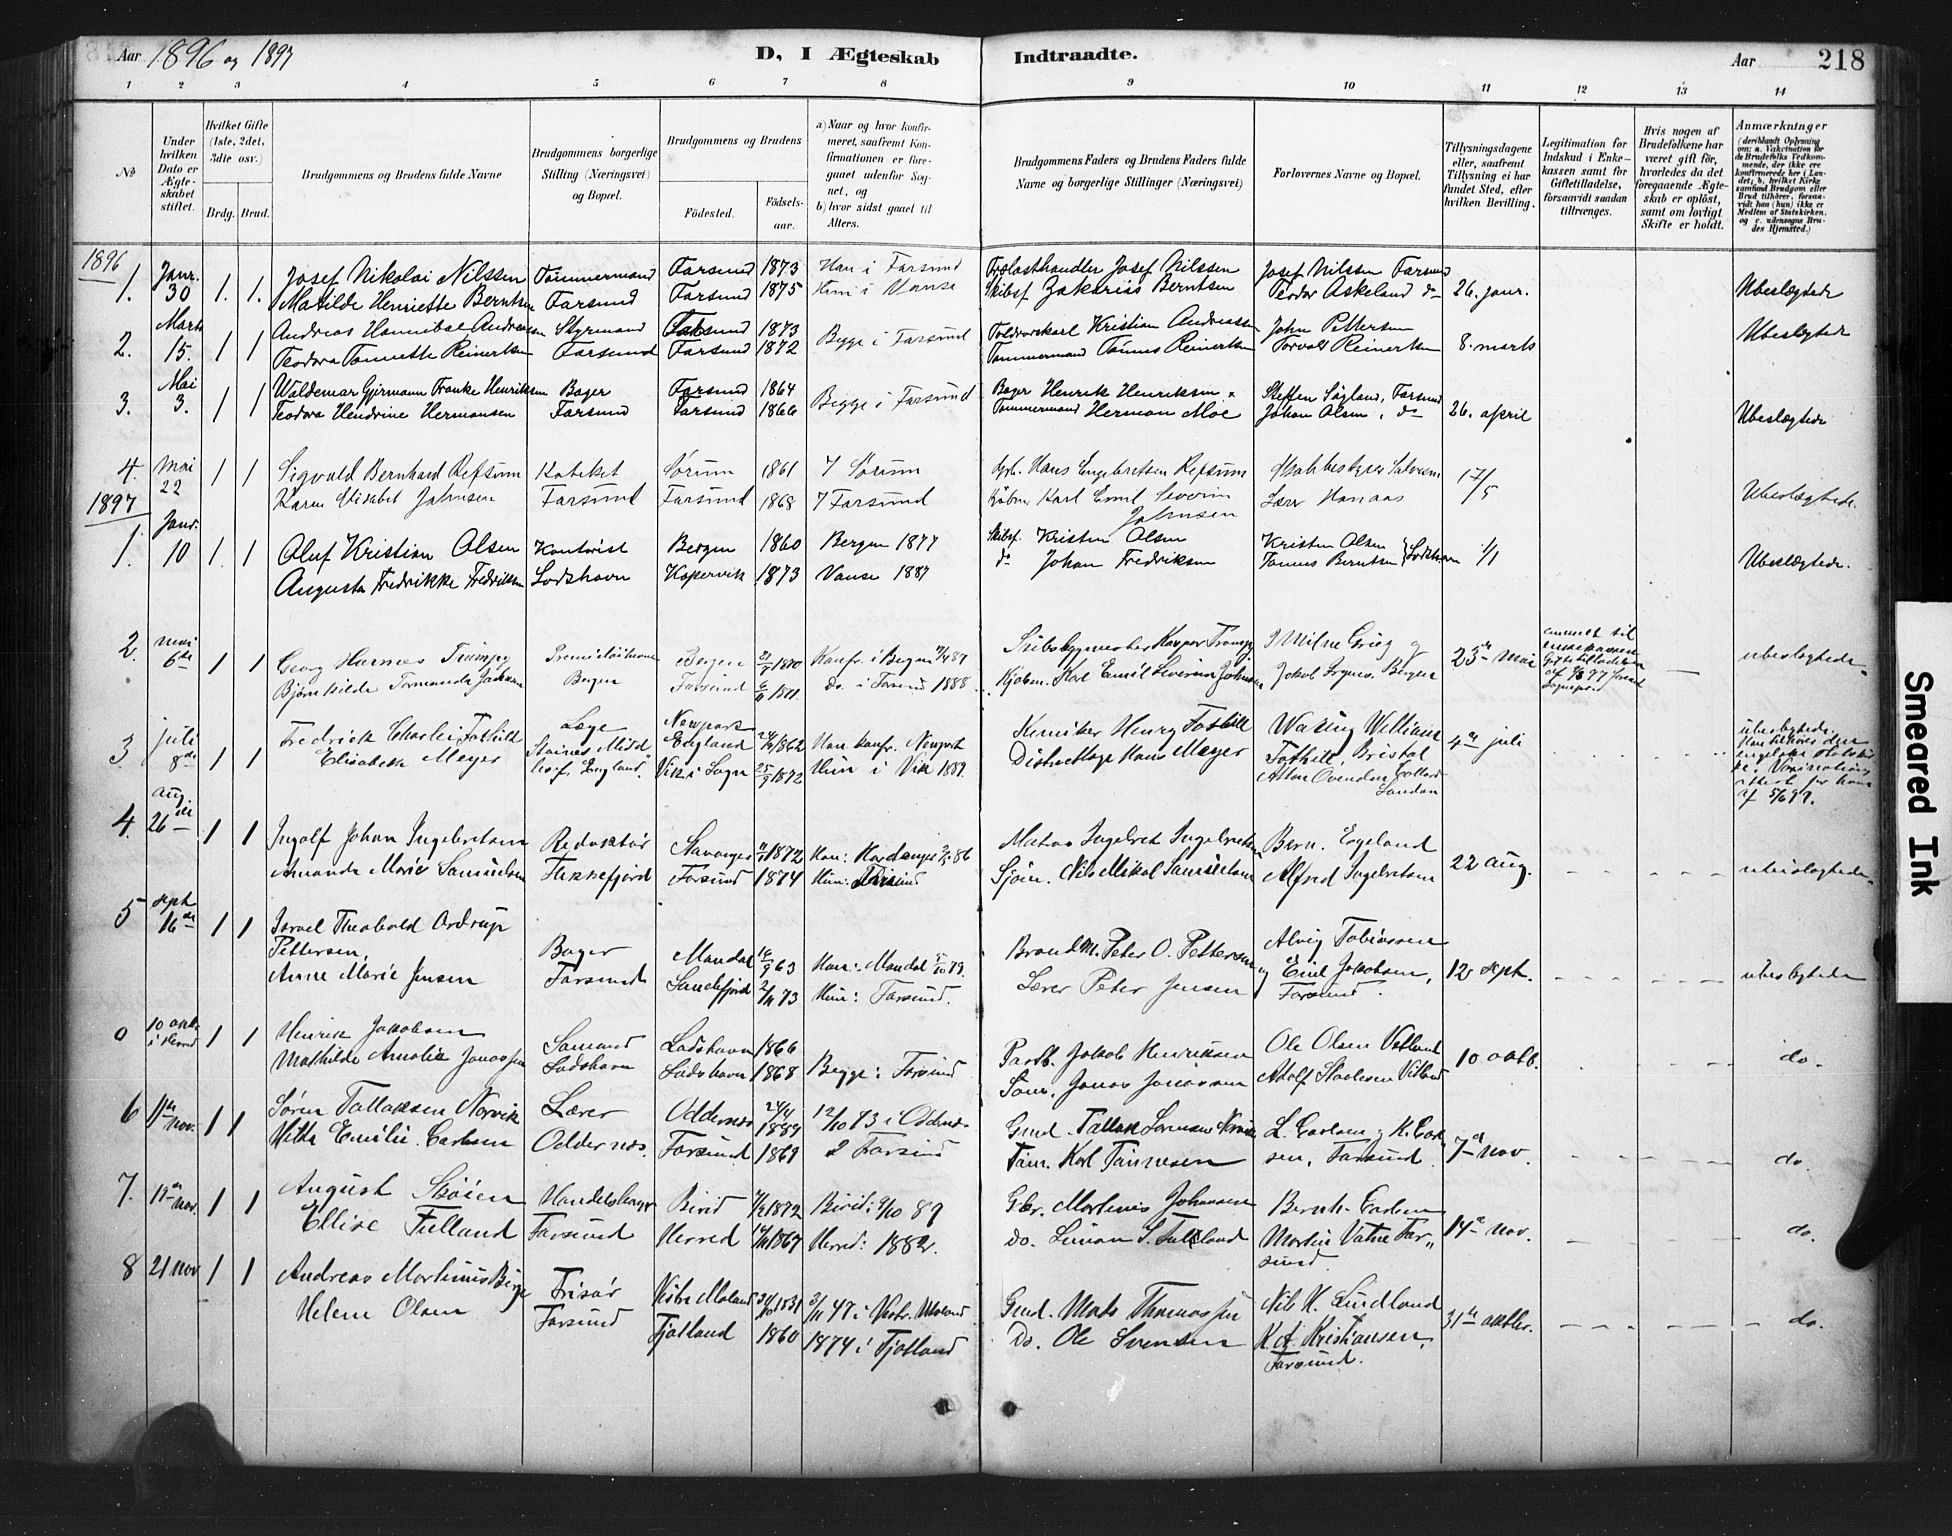 Aar 1896 og 1897
D, I Ægteskab Indtraadte.
Aar 218
1 2 3 4 5 6 7 8 9 10 11 12 13 14
No
Under hvilken Dato er Ægteskabet stiftet.
Hvilket Gifte (1ste, 2det, 3die osv.)
Brdg. Brud.
Brudgommens og Brudens fulde Navne
Brudgommens borgerlige Stilling (Næringsvei) og Bopæl.
Brudgommens og Brudens
Fødested. Fødselsaar.
a) Naar og hvor konfirmeret, saafremt Konfirmationen er foregaaet udenfor Sognet, og
b) hvor sidst gaaet til Alters.
Brudgommens Faders og Brudens Faders fulde Navne og borgerlige Stillinger (Næringsvei)
Forlovernes Navne og Bopæl.
Tillysningsdagene eller, saafremt Tillysning ei har fundet Sted, efter hvilken Bevilling.
Legitimation for Indskud i Enkekassen samt for Giftetilladelse, forsaavidt saadan tiltrænges.
Hvis nogen af Brudefolkene har været gift før, hvorledes da det foregaaende Ægteskab er opløst, samt om lovligt Skifte er holdt.
Anmærkninger (deriblandt Oplysning om: a. Vakcination for de Brudefolks Vedkommende, der ikke ere konfirmerede her i Landet; b. hvilket Kirkesamfund Brudgom eller Brud tilhører, forsaavidt han (hun) ikke er Medlem af Statskirken, og c. udensogns Brudes Hjemsted.)
1896
1. Janr. 30 1. 1. Josef Nikolai Nilssen Tømmermand Farsund 1873 Han i Farsund Trælasthandler Josef Nilssen Josef Nilssen Farsund 26. janr. Ubeslægtede
Matilde Henriette Berntsen Farsund Farsund 1875 Hun i Vanse Skibsf. Zakarias Berntsen Teodor Askeland do
2. Marts 15. 1 1 Andreas Hannibal Andreassen Styrmand Farsund 1873 Begge i Farsund Kristian Andreassen John Pettersen 8. marts Ubeslægtede
Teodora Tonnette Reinertsen Farsund Farsund 1872 Tømmermand Tønnes Reinertsen Torvald Reinertsen
3. Mai 3. 1 1 Waldemar Gjermann Franke Henriksen Bager Farsund 1864 Begge i Farsund Bager Henrik Henriksen Steffen Søgland, Farsund 26. april Ubeslægtede
Teodora Hendrine Hermansen Farsund Farsund 1866 Tømmermand Herman Moe Johan Olsen, do
4. Mai 22 1 1 Sigvald Bernhard Refsum Kateket Sørum 1861 Sørum Hans Engebretsen Refsum 17/5 Ubeslægtede.
Karen Elisabet Johnsen Farsund Farsund 1868 Farsund Kjøbm. Karl Emil Severin Johnsen Lærer Hanaas
1897
1. Janr. 10 1. 1 Oluf Kristian Olsen Kontorist Bergen 1860 Bergen 1877 Skibsf. Kristen Olsen Kristen Olsen 1/1 Ubeslægtede.
Augusta Fredrikke Fredriksen Lodshavn Kopervik 1873 Vanse 1887 do Johan Fredriksen Tønnes Berntsen Lodshavn
2. mai 6te 1 1 Georg Harnes Trumpy Premierløitnant Bergen Konfr. i Bergen Skibsbygmester Kaspar Trumpy J Milne Grieg og 23de mai ubeslægtede
Bjørnhilde Johnsen Bergen Farsund do. i Farsund 1888. Kjøbm. Karl Emil Severin Johnsen Jakob Bergen
3. juli 8de 1 1 Fredrick Charles Tothill Læge Newport England 1862 Han konfr. Newport Kemiker Henry Tothill William Tothill, Bristol 4de juli ubeslægtede.
Elisabeth Meyer Staines England Vik i Sogn 25/9 1872 Hun i Vik 1889. Distriktslæge Hans Meyer London af 5/6 97.
4. aug. 26de 1 1 Ingolf Johan Ingebretsen Redaktør Stavanger 1872 Han: Hardanger 86 Ingebret Ingebretsen Bern. Egeland 22 aug. ubeslægtede
Amanda Marie Samuelsen Flekkefjord Farsund 1874 Hun: Farsund Sjøm. Nils Mikal Samuelsen Alfred Ingebretsen
5 sept 16de 1 1 Israel Theobald Ordrup Pettersen, Bager Mandal 16/9 63 Han: Mandal 5/10 79. Brandm. Peter O. Pettersen Alvig Tobiassen 12 sept. ubeslægtede
Anne Marie Jensen Farsund Sandefjord 2/11 73 Hun: Farsund. Lærer Peter Jensen og Emil Jakobsen, Farsund.
0 10 oktb. i Herred 1 1 Henrik Jakobsen Sømand Lodshavn 1866 Begge: Farsund Jakob Henriksen Ole Olsen Vetland 10 oktb. do.
Mathilde Amalie Jonassen Lodshavn Lodshavn 1868 Jonas Jonassen Adolf Vetland
6 11te nov. 1 1 Søren Tallaksen Norvik Lærer Oddernes 12/10 73 i Oddernes Gmd. Tallak Sørensen L. Carlsen og K. Carlsen, Farsund 7de nov. do.
Emilie Carlsen Oddernes. Farsund 1869 Farsund Tøm. Karl Tønnesen
7. 18de nov. 1 1 August Skøien Birid 1872 Birid: 9/10 87 Gbr. Martinus Johansen Bernh. Carlsen 14de nov. do.
Ellise Fulland Farsund Herred 1867 Herred: 1882. do. Simon S. Fulland Martin Vatne Farsund
8 21 nov 1 1 Andreas Martinus Berge Frisør Vestre Moland 1831 47 i Vestr. Moland Gmd. Mads Thomassen Nils K. Lindland 31te oktbr. do.
Helene Olsen Farsund Fjotland 1860 1874 i Fjotland Do. Ole Svensen K. A. Kristiansen, Farsund.
Smeared Ink